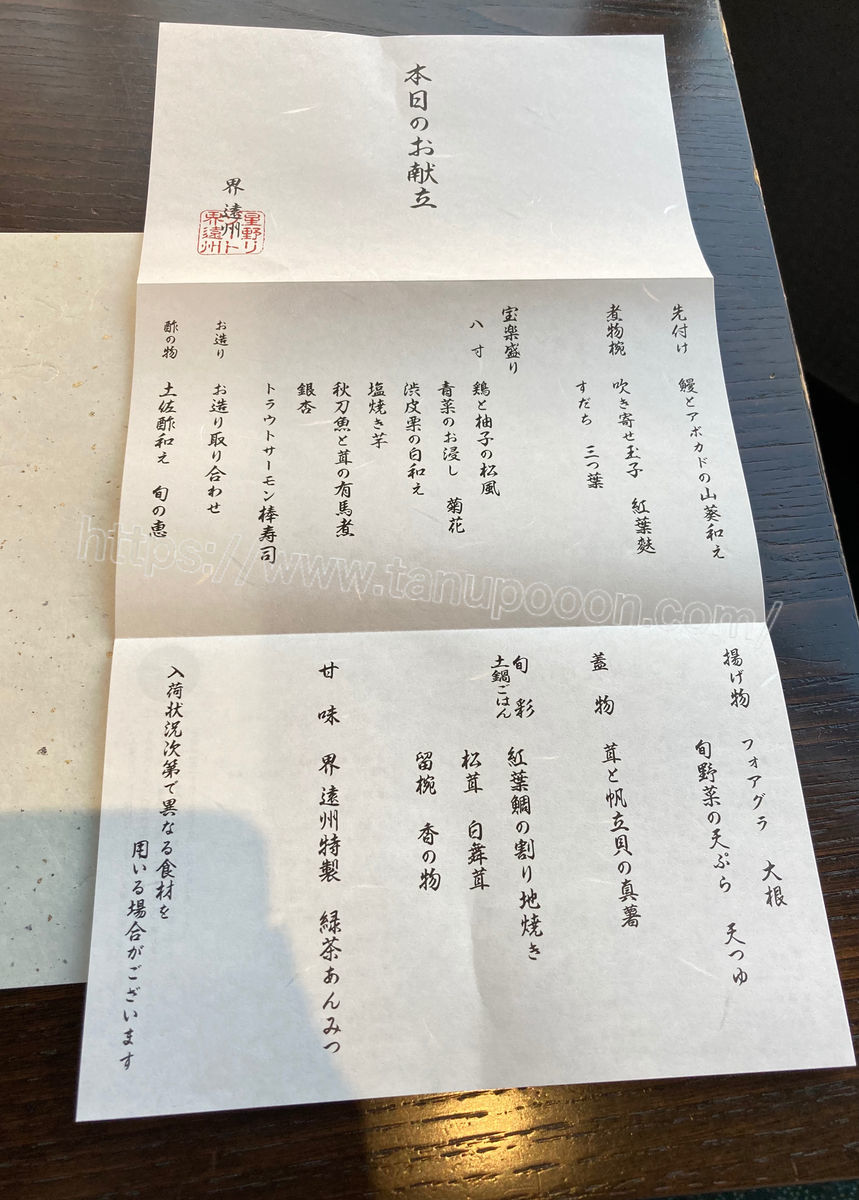 本日のお献立
界 遠州
星野リ
ゾート
界遠州
先付け 鰻とアボカドの山葵和え
煮物椀 吹き寄せ玉子 紅葉麩
すだち 三つ葉
宝楽盛り
八寸 鶏と柚子の松風
青菜のお浸し 菊花
渋皮栗の白和え
塩焼き芋
秋刀魚と茸の有馬煮
銀杏
トラウトサーモン棒寿司
お造り お造り取り合わせ
酢の物 土佐酢和え 旬の恵
揚げ物 フォアグラ 大根
旬野菜の天ぷら 天つゆ
蓋物 茸と帆立貝の真薯
旬彩 紅葉鯛の割り地焼き
土鍋ごはん 松茸 白舞茸
留椀 香の物
甘味 界遠州特製 緑茶あんみつ
入荷状況次第で異なる食材を
用いる場合がございます
https://www.tanupooon.com/